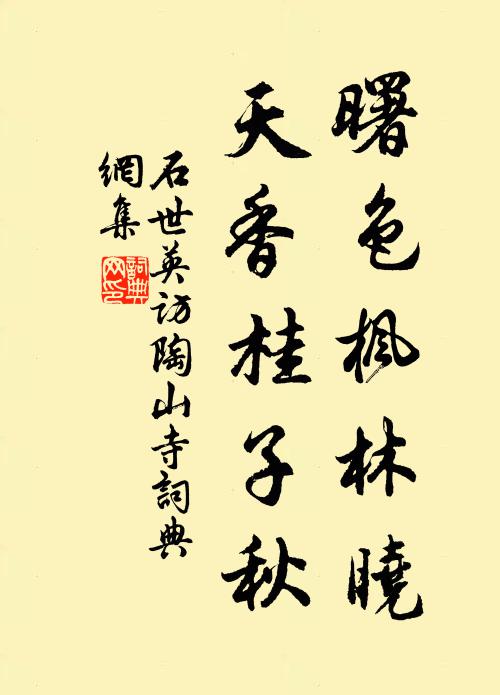 曙色楓林曉
天香桂子秋
石世英訪陶山寺詞典
網集
詞典
网印